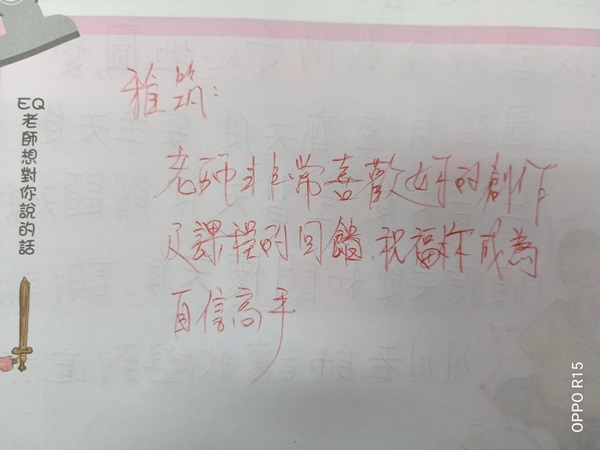 EQ老師想對你說的話
雅筑:
老師非常喜歡妳的創作
及課程的回饋、祝福妳成為
自信高手
OPPO R15